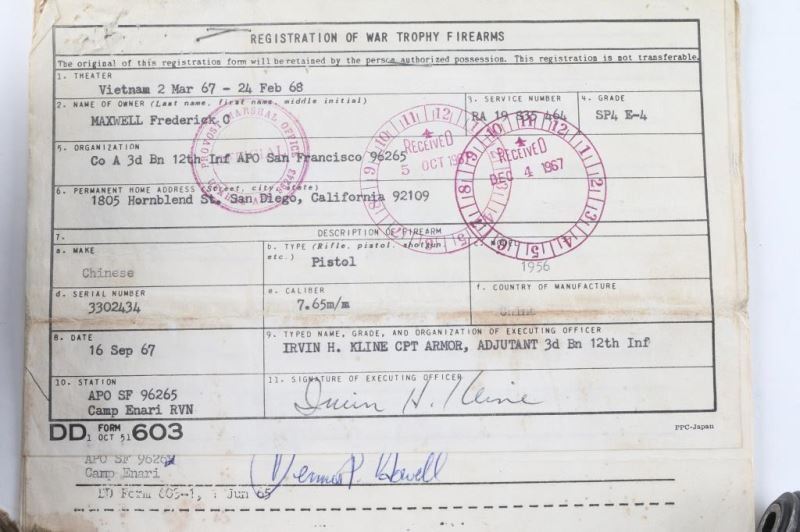 REGISTRATION OF WAR TROPHY FIREARMS
The original of this registration form will be retained by the person authorized possession. This registration is not transferable.
1. THEATER
Vietnam 2 Mar 67 - 24 Feb 68
2. NAME OF OWNER (Last name, first name, middle initial)
MAXWELL Frederick C
3. SERVICE NUMBER
RA 19 835 464
4. GRADE
SP4 E-4
5. ORGANIZATION
Co A 3d Bn 12th Inf APO San Francisco 96265
6. PERMANENT HOME ADDRESS (Street, city, state)
1805 Hornblend St. San Diego, California 92109
PROVOST MARSHAL OFFICE
OFFICIAL
RECEIVED
5 OCT 1967
RECEIVED
DEC 4 1967
7. DESCRIPTION OF FIREARM
a. MAKE
Chinese
b. TYPE (Rifle, pistol, shotgun, etc.)
Pistol
c. MODEL
1956
d. SERIAL NUMBER
3302434
e. CALIBER
7.65m/m
f. COUNTRY OF MANUFACTURE
China
8. DATE
16 Sep 67
9. TYPED NAME, GRADE, AND ORGANIZATION OF EXECUTING OFFICER
IRVIN H. KLINE CPT ARMOR, ADJUTANT 3d Bn 12th Inf
10. STATION
APO SF 96265
Camp Enari RVN
11. SIGNATURE OF EXECUTING OFFICER
Irvin H. Kline
DD FORM 1 OCT 51 603
PPC-Japan
APO SF 9626
Camp Enari
DD Form 603-1, 1 Jun 65